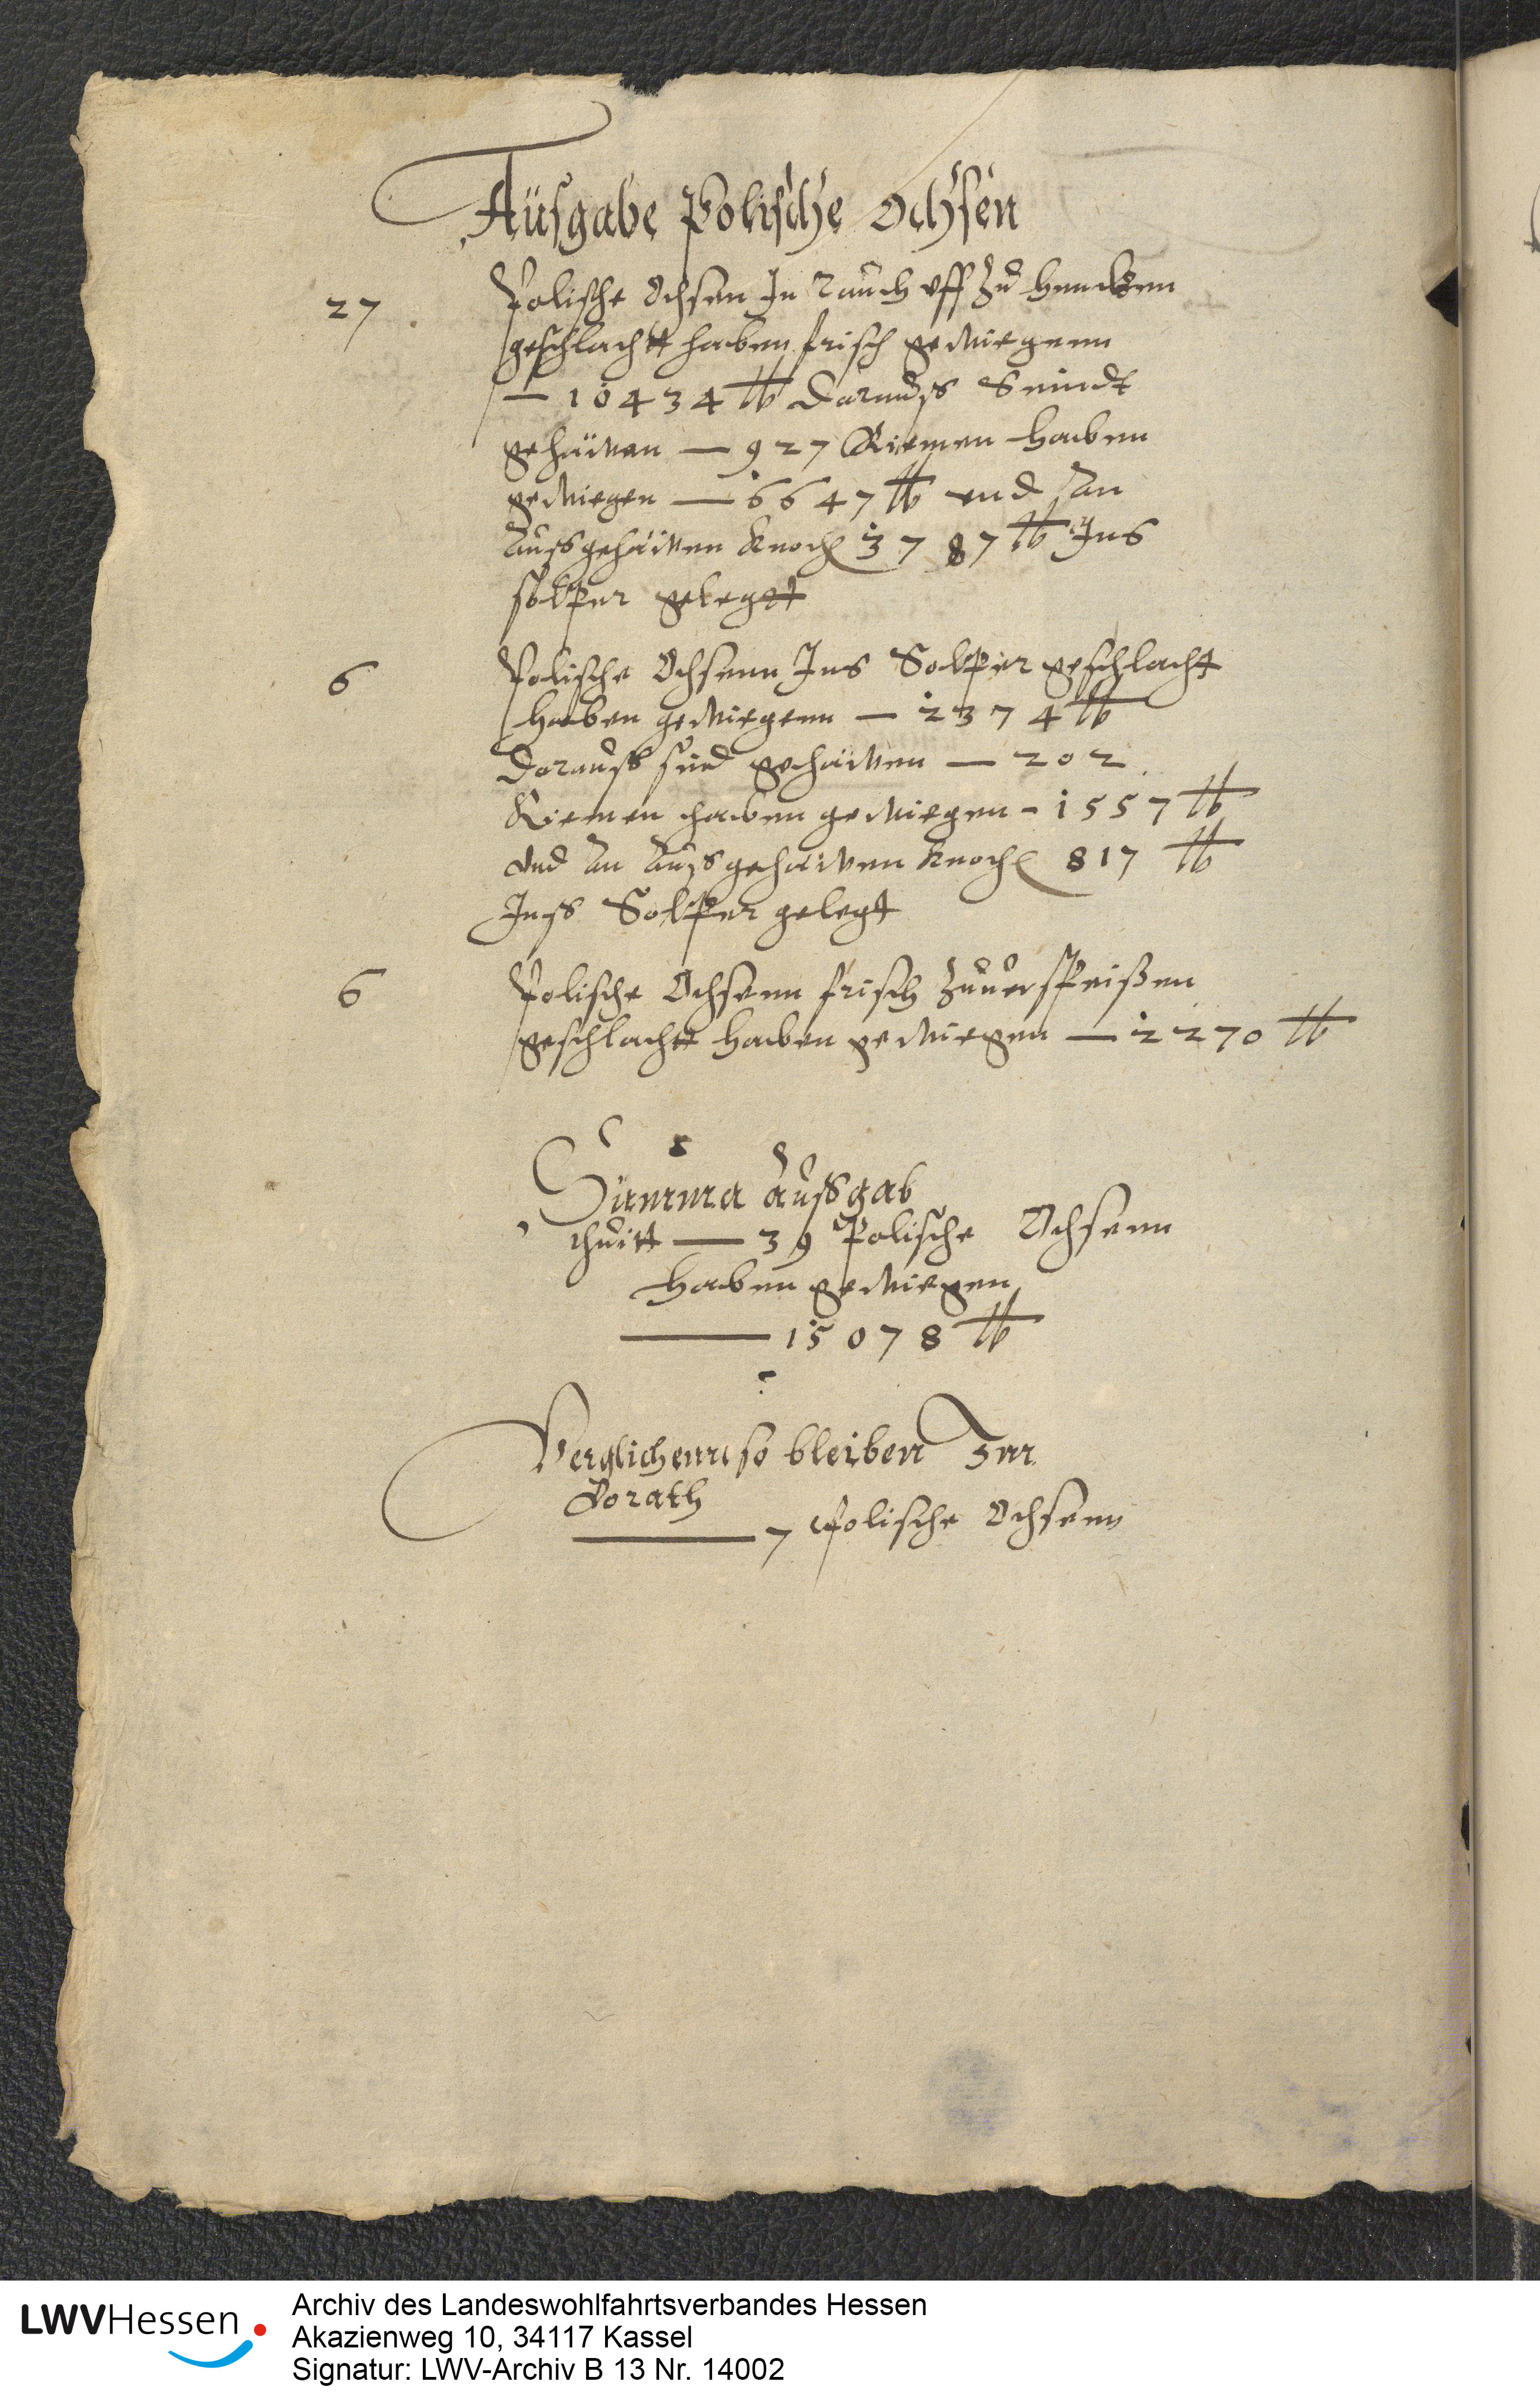 Ausgabe Polische Ochsen
27 Polische Ochsen In Rauch uff zu hencken
geschlachtt haben frisch gewiegenn
— 10434 lb darauss Seindt
gehauwen — 927 Riemen haben
gewiegen — 6647 lb und An
Aussgehauwen Knoch 3787 lb Ins
solper gelegtt
6 Polische Ochsenn Ins Solper geschlacht
haben gewiegenn — 2374 lb
darauss sind gehauwen — 202
Riemen haben gewiegen - 1557 lb
und An Aussgehauwen Knoch 817 lb
Inss Solper gelegt
6 Polische Ochsenn frisch zuuerspeißen
geschlachtt haben gewiegen — 2270 lb
Summa Aussgab
thuitt — 39 Polische Ochsenn
haben gewiegen
— 15078 lb
Verglichenn so bleiben Im
Vorath
— 7 Polische Ochsenn
LWVHessen
Archiv des Landeswohlfahrtsverbandes Hessen
Akazienweg 10, 34117 Kassel
Signatur: LWV-Archiv B 13 Nr. 14002